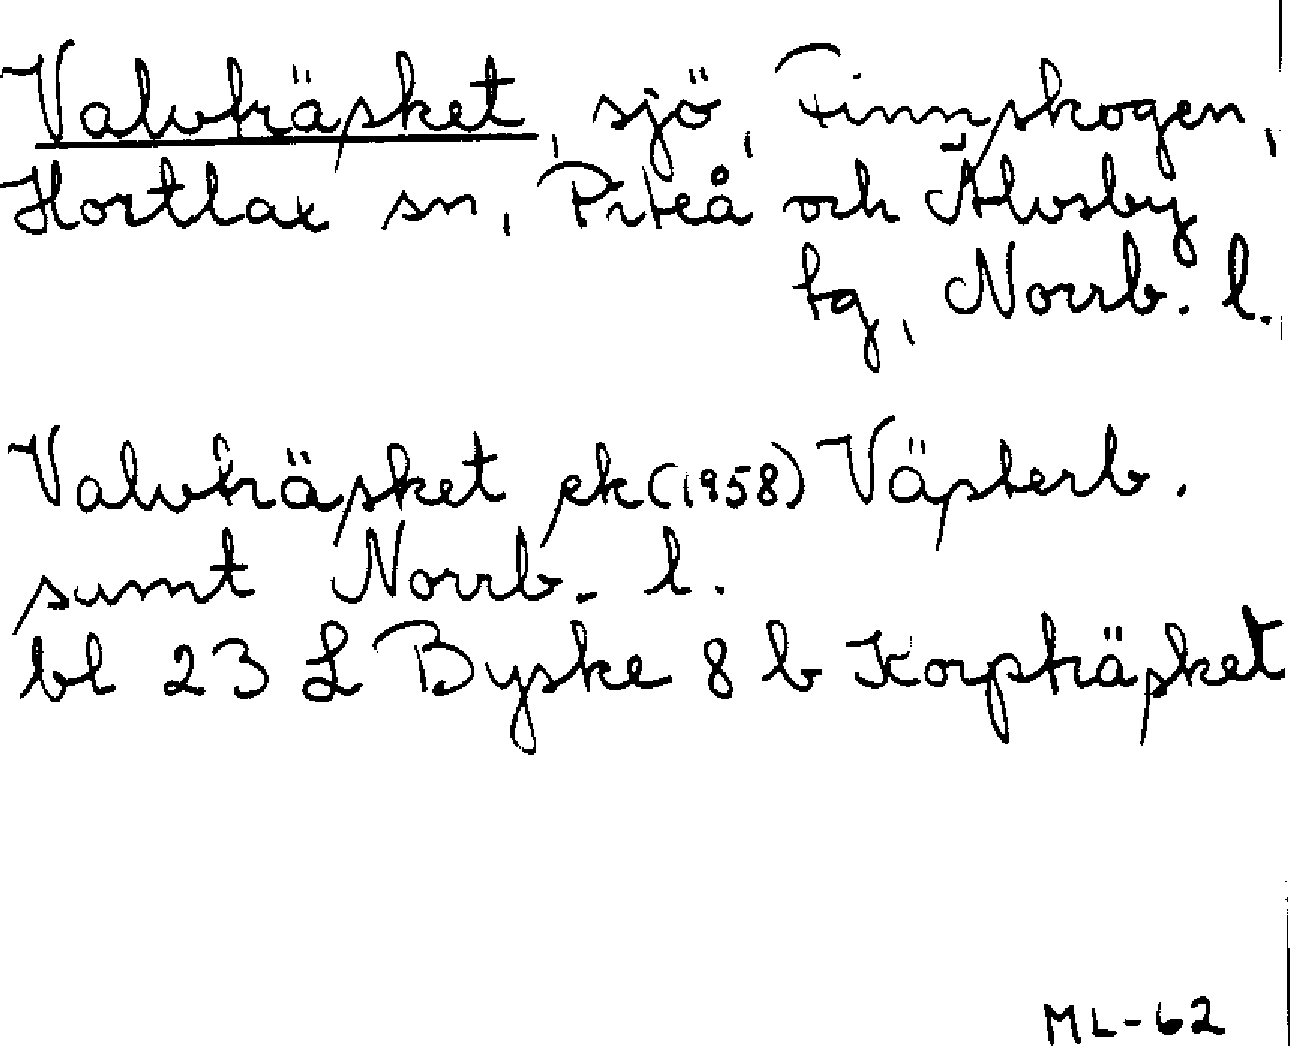 Valvträsket, sjö, Finnskogen,
Hortlax sn, Piteå och Älvsby
tg, Norrb. l.
Valvträsket ek (1958) Västerb.
samt Norrb. l.
bl 23 L Byske 8 b Korpträsket
ML-62